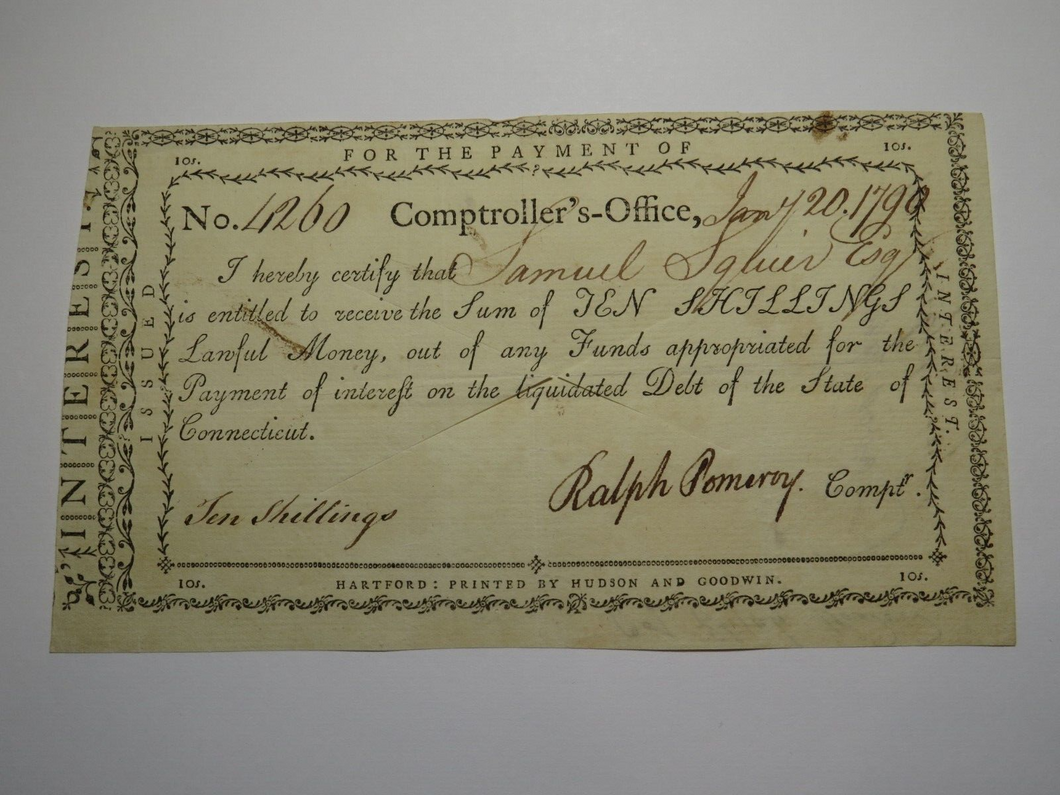 FOR THE PAYMENT OF
10s.
10s.
No. 4260 Comptroller's-Office, Jany 20. 1790
I hereby certify that Samuel Squier Esqr
is entitled to receive the Sum of TEN SHILLINGS
Lawful Money, out of any Funds appropriated for the
Payment of intereſt on the liquidated Debt of the State of
Connecticut.
Ralph Pomeroy. Comptr.
Ten Shillings
10s.
HARTFORD: PRINTED BY HUDSON AND GOODWIN.
10s.
INTEREST.
ISSUED
INTEREST.